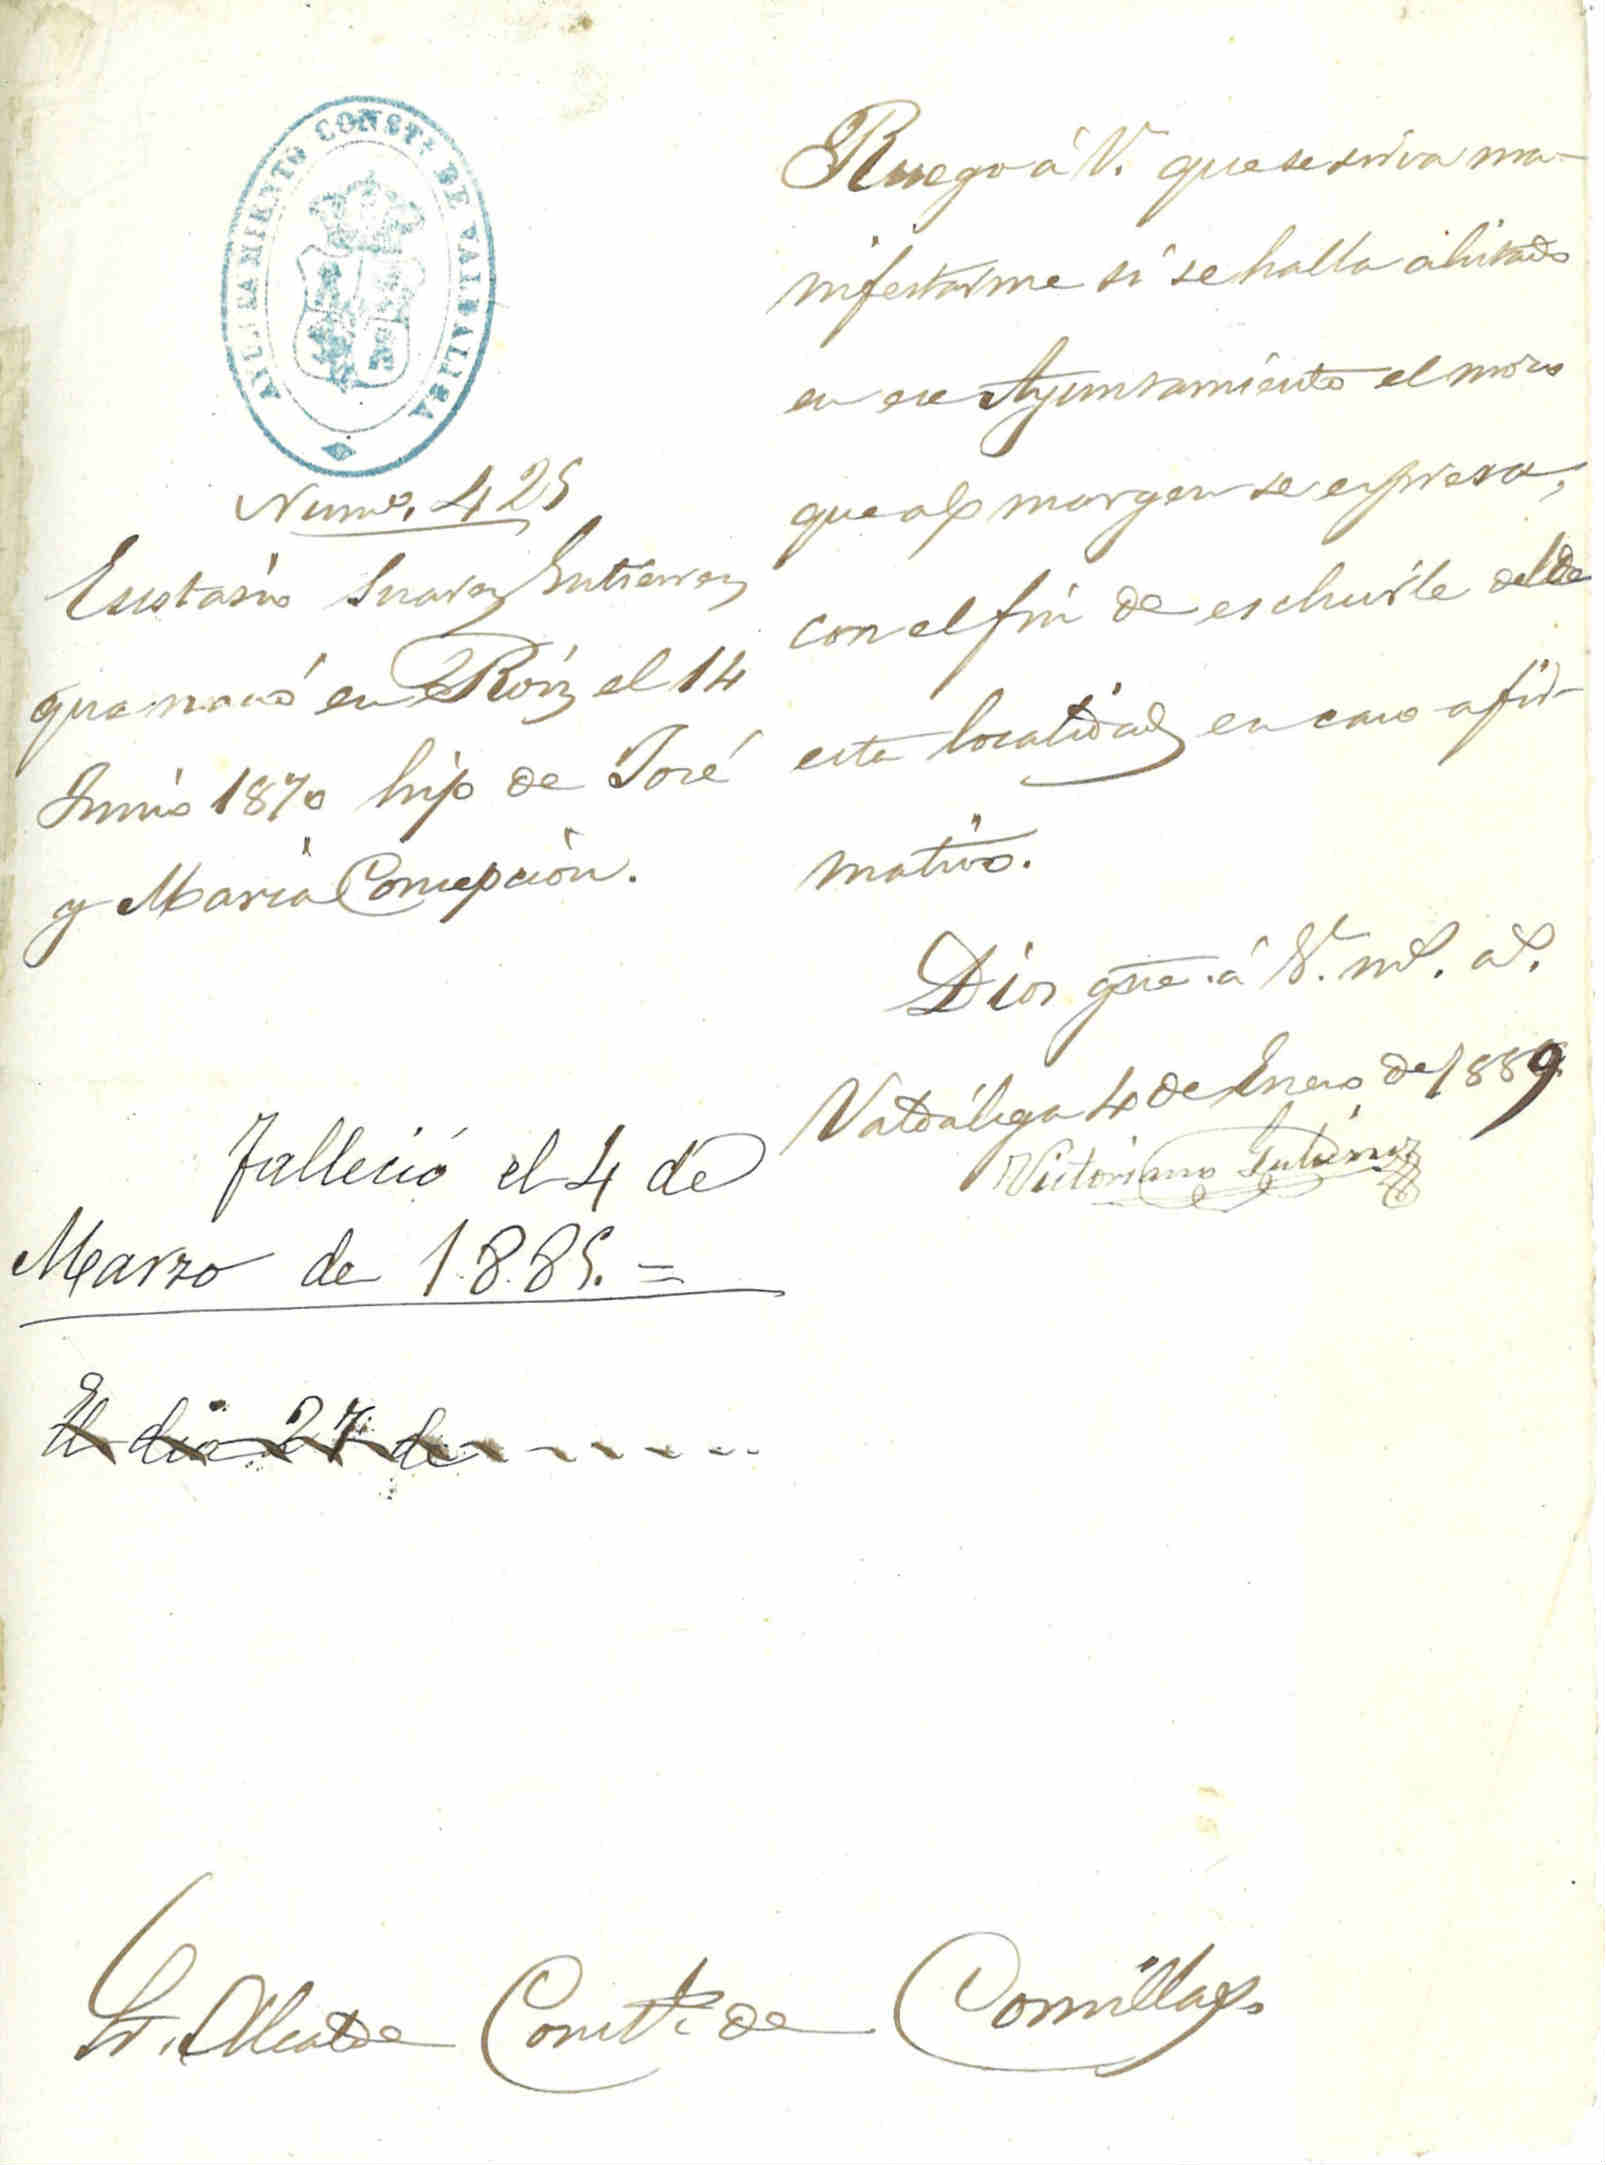 AYUNTAMIENTO CONSTL. DE VALDALIGA
Numo. 425
Eustasio Suarez Gutierrez
que nació en Roiz el 14
Junio 1870 hijo de José
y María Concepción.
Falleció el 4 de
Marzo de 1.885. =
El dia 27 de
Ruego á V. que se sirva ma-
nifestarme si se halla alistado
en ese Ayuntamiento el mozo
que al margen se expresa,
con el fin de escluirle del de
esta localidad en caso afir-
mativo.
Dios gue. á V. ms. as.
Valdáliga 4 de Enero de 1889
Victoriano Gutierrez
Sr. Alcalde Constl. de Comillas